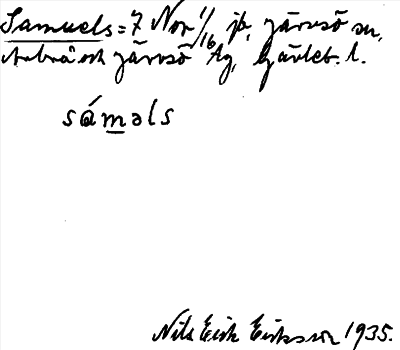 Samuels = 7 Nor 1/16 jb, Järvsö sn,
Arbrå och Järvsö tg, Gävleb. l.
sámǝls
Nils Eirik Eriksson 1935.